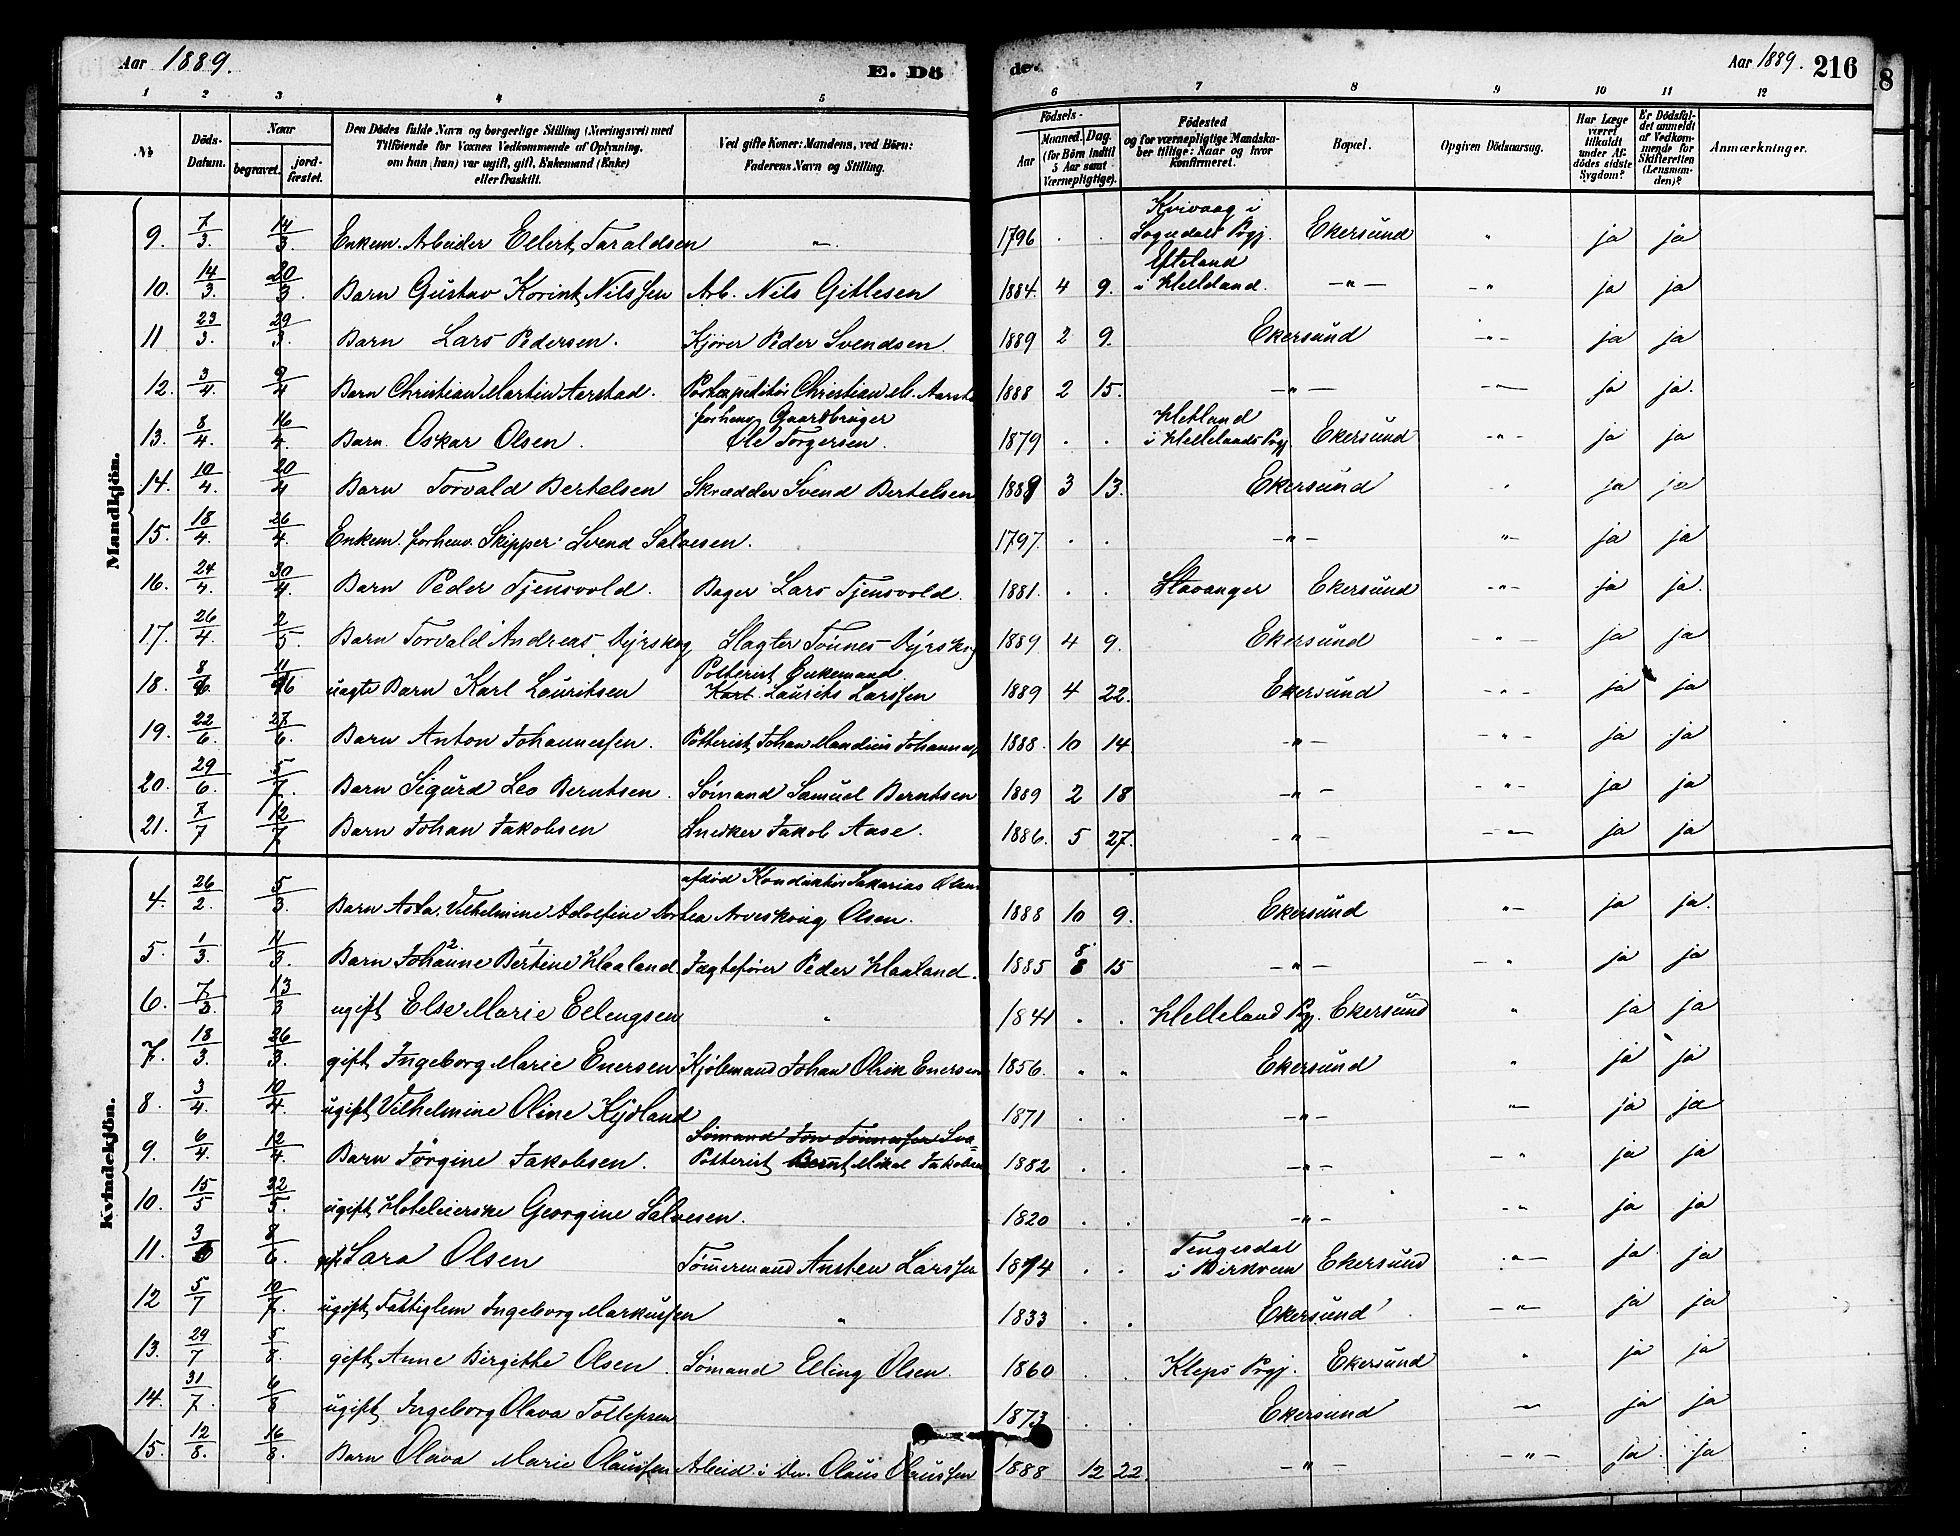 Aar 1889. E. Dö de. Aar 1889. 216
8
1 2 3 4 5 6 7 8 9 10 11 12
No Döds-Datum. Naar begravet. jord-fæstet. Den Dödes fulde Navn og borgerlige Stilling (Næringsvei) med Tilföiende for Voxnes Vedkommende af Oplysning, om han (hun) var ugift, gift, Enkemand (Enke) eller fraskilt. Ved gifte Koner: Mandens, ved Börn: Faderens Navn og Stilling. Födsels- Aar Maaned. Dag. (for Börn indtil 5 Aar samt Værnepligtige). Födested og for værnepligtige Mandskaber tillige: Naar og hvor konfirmeret. Bopæl. Opgiven Dödsaarsag. Har Læge været tilkaldt under Afdödes sidste Sygdom? Er Dödsfaldet anmeldt af Vedkommende for Skifteretten (Lensmanden)? Anmærkninger.
Mandkjön.
9. 7/3. 14/3. Enkem. Arbeider Ellert Taraldsen -„- 1796 . . Kvivaag i Sogndals Prgj. Ekersund „ ja ja
10. 14/3. 20/3. Barn Gustav Korint Nilssen Arb. Nils Gitlesen 1884. 4 9. Efteland i Helleland. -„- -„ ja ja
11 23/3. 29/3. Barn Lars Pedersen. Kjører Peder Svendsen. 1889 2 9. Ekersund -„- ja ja
12. 3/4. 9/4 Barn Christian Martin Aarstad. Postexpeditör Christian M. Aarsta 1888 2 15. -„- -„- ja ja.
13. 8/4. 16/4. Barn. Oskar Olsen. forhenv. Gaardbruger Ole Torgersen. 1879 . . Hetland i Hellelands Prgj Ekersund -„- ja ja
14. 10/4. 20/4 Barn Torvald Bertelsen Skrædder Svend Bertelsen 1889 3 13. Ekersund „ ja ja
15. 18/4. 26/4. Enkem. forhenv. Skipper Svend Salvesen. 1797. . . -„- „- ja ja
16. 24/4. 30/4. Barn Peder Tjensvold. Bager Lars Tjensvold. 1881. . . Stavanger Ekersund -„- ja ja.
17. 26/4 2/5. Barn Torvald Andreas Dyrskog Slagter Tönnes Dyrskog 1889 4 9. Ekersund -„- ja ja
18. 8/6. 11/6 uægte Barn Karl Lauritsen Potterist Enkemand. Karl Laurits Larssen 1889 4 22. Ekersund -„- ja ja
19. 22/6. 27/6. Barn Anton Johannessen. Potterist Johan Mandius Johanness 1888. 10 14 -„- -„- ja ja
20. 29/6. 5/7. Barn Sigurd Leo Berntsen. Sömand Samuel Berntsen 1889 2 18 -„- -„- ja ja
21. 7/7 12/7 Barn Johan Jakobsen Snedker Jakob Aase. 1886. 5 27. -„- -„- ja ja
Kvindekjön.
4. 26/2. 5/3. Barn Asta Vilhelmine Adolfine Dorthea Arveskoug Olsen. afdöd Konduktör Sakarias Olsen 1888 10 9. Ekersund „- ja ja.
5. 1/3. 11/3. Barn Johanne 2 Bertine 1 Haaland. Jægtefører Peder Haaland. 1885 8 8 15 -„- -„ ja ja
6. 7/3 13/3 ugift Else Marie Ellengsen „ 1841 . . Helleland Prgj. Ekersund „ ja ja
7. 18/3. 26/3. gift Ingeborg Marie Enersen Kjölemand Johan Olrik Enersen 1856. „ „ Ekersund „ ja ja
8. 3/4. 10/4. ugift Vilhelmine Oline Kydland 1871 . . -„- „- ja ja
9. 6/4. 12/4. Barn Jörgine Jakobsen. Sömand Jon Tönnessen Sva= Potterist Bernt Mikal Jakobsen 1882 . . -„- -„ ja ja
10. 15/5 22/5. ugift Hoteleierske Georgine Salvesen. 1820 . . -„- -„ ja ja
11. 3/6 8/6. gift Sara Olsen Tömmermand Ansten Larssen 1874 . . Tengesdal i Birkrem Ekersund -„- ja ja
12 5/7 10/7. ugift Fattiglem Ingeborg Markussen „ 1833 . . Ekersund -„- ja ja
13. 29/7 5/8. gift Anne Birgitte Olsen. Sömand Elling Olsen. 1860 . . Kleps Prgj. Ekersund „ ja ja
14. 31/7. 6/8 ugift Ingeborg Olava Tollefsen 1873 . . Ekersund ja ja
15. 12/8. 16/8. Barn Olava Marie Olaussen Arbeid. i Olaus Olaussen 1888 12 22. -„- -„- ja. ja